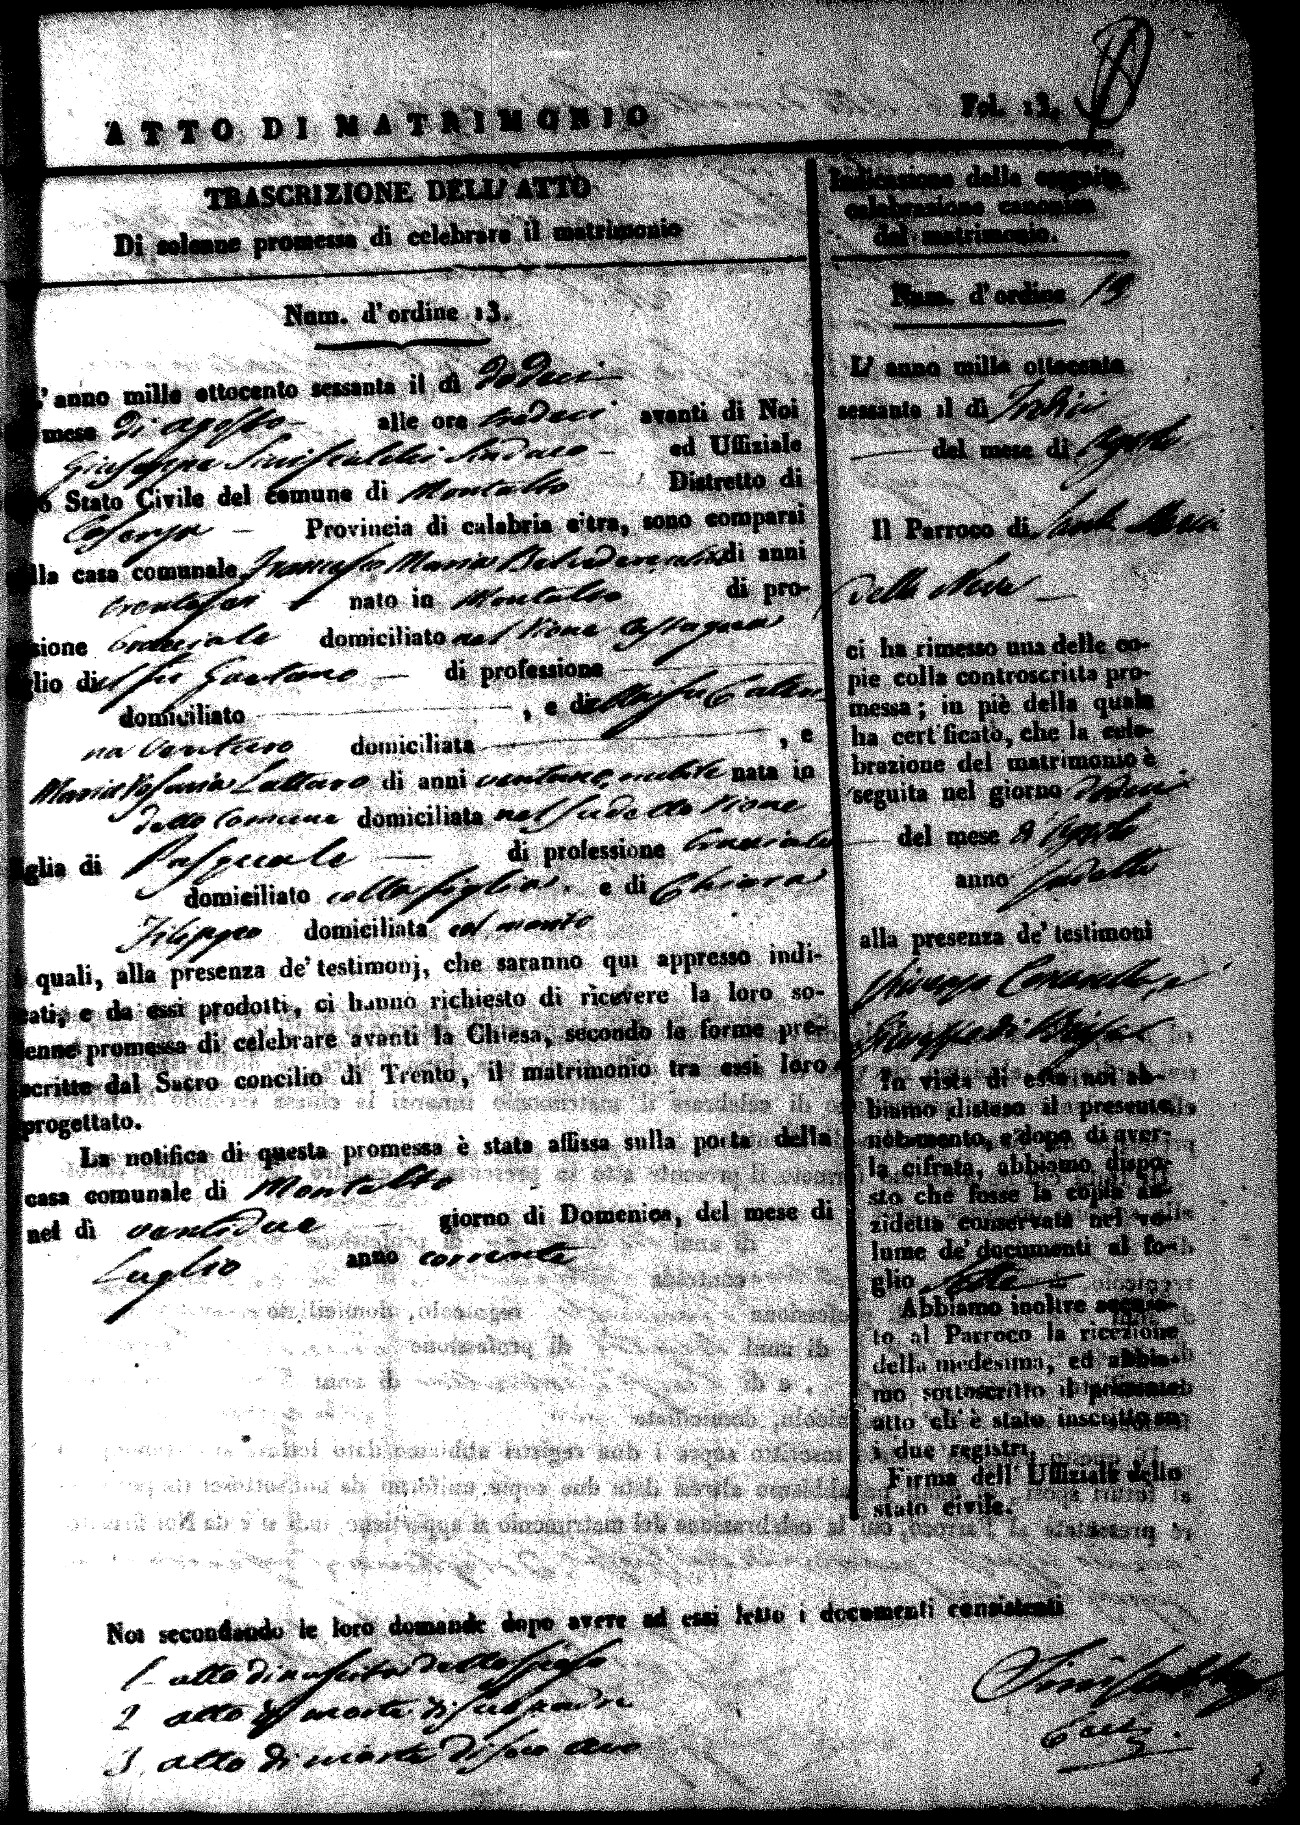 ATTO DI MATRIMONIO
Fol. 13.
TRASCRIZIONE DELL'ATTO
Di solenne promessa di celebrare il matrimonio
Num. d'ordine 13.
L'anno mille ottocento sessanta il dì dodeci
mese di agosto alle ore tredeci avanti di Noi
Giuseppe Siniscalchi Sindaco ed Uffiziale
Stato Civile del comune di Montalto Distretto di
Cosenza Provincia di calabria citra, sono comparsi
lla casa comunale Francesco Maria di anni
trentasei nato in Montalto di pro-
sione Bracciale domiciliato nel Rione
glio di Gaetano di professione
domiciliato , e di Cateri
na Venturo domiciliata , e
Maria Rosaria Lattaro di anni ventuno, nubile nata in
detto Comune domiciliata nel sudetto Rione
iglia di Pasquale di professione bracciale
domiciliato colla figlia. e di Chiara
Filippo domiciliata col marito
quali, alla presenza de' testimonj, che saranno qui appresso indi-
cati, e da essi prodotti, ci hanno richiesto di ricevere la loro so-
lenne promessa di celebrare avanti la Chiesa, secondo le forme pre-
scritte dal Sacro concilio di Trento, il matrimonio tra essi loro
progettato.
La notifica di questa promessa è stata affissa sulla porta della
casa comunale di Montalto
nel dì ventidue giorno di Domenica, del mese di
Luglio anno corrente
Indicazione della seguita
celebrazione canonica
del matrimonio.
Num. d'ordine 13
L'anno mille ottocento
sessanta il dì Tredici
del mese di Agosto
Il Parroco di Santa Maria
della Neve
ci ha rimesso una delle co-
pie colla controscritta pro-
messa; in piè della quale
ha certificato, che la cele-
brazione del matrimonio è
seguita nel giorno dodeci
del mese d'Agosto
anno sudetto
alla presenza de' testimoni
Giuseppe di
In vista di essa noi ab-
biamo disteso il presente
notamento, e dopo di aver-
la cifrata, abbiamo dispo-
sto che fosse la copia an-
zidetta conservata nel vo-
lume de' documenti al fo-
glio sette
Abbiamo inoltre accusa-
to al Parroco la ricezione
della medesima, ed abbia-
mo sottoscritto il presente
atto ch'è stato inscritto su
i due registri.
Firma dell' Uffiziale dello
stato civile.
Noi secondando le loro domande dopo avere ad essi letto i documenti consistenti
1 atto di nascita dello sposo
2 atto di morte di suo padre
3 atto di morte di suo avo